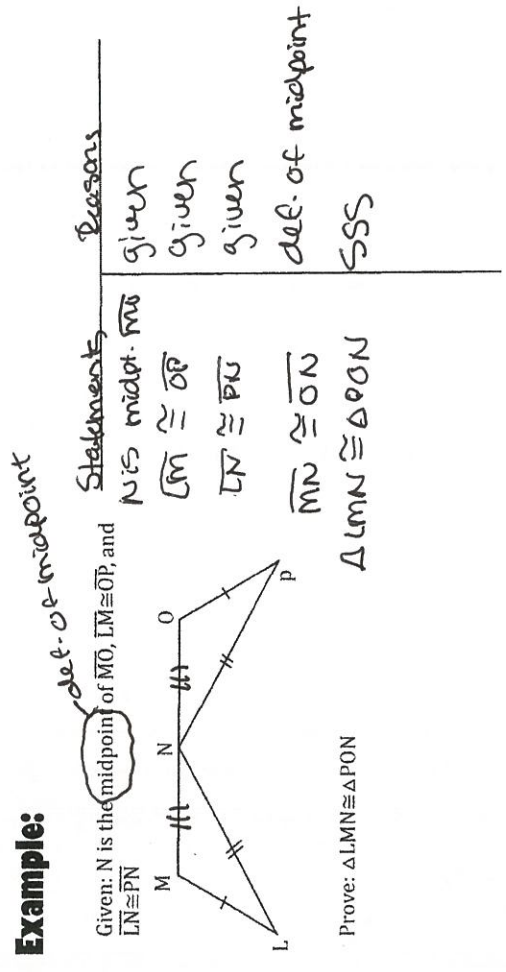 Example:
def. of midpoint
Given: N is the midpoint of MO, LM≅OP, and
LN≅PN
M
N
O
L
P
Prove: △LMN≅△PON
Statements Reasons
N is midpt. MO given
LM ≅ OP given
LN ≅ PN given
MN ≅ ON def. of midpoint
△LMN ≅ △PON SSS